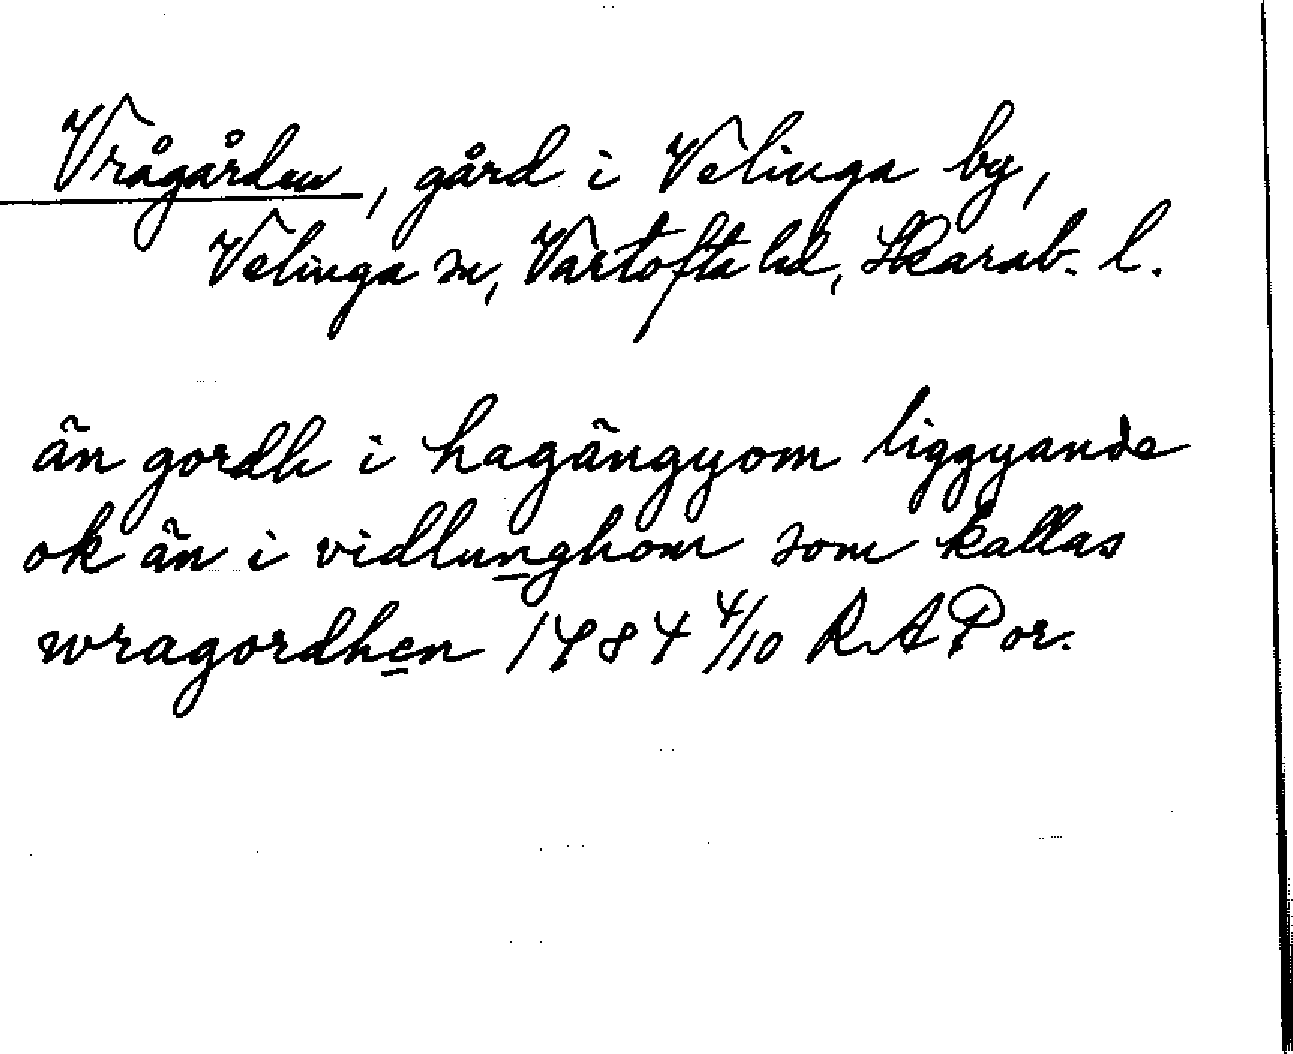 Vrågården, gård i Velinga by,
Velinga sn, Vartofta hd, Skarab. l.
än gordh i hagängyom liggyande
ok än i vidlunghom som kallas
wragordhen 1484 4/10 RAPor.